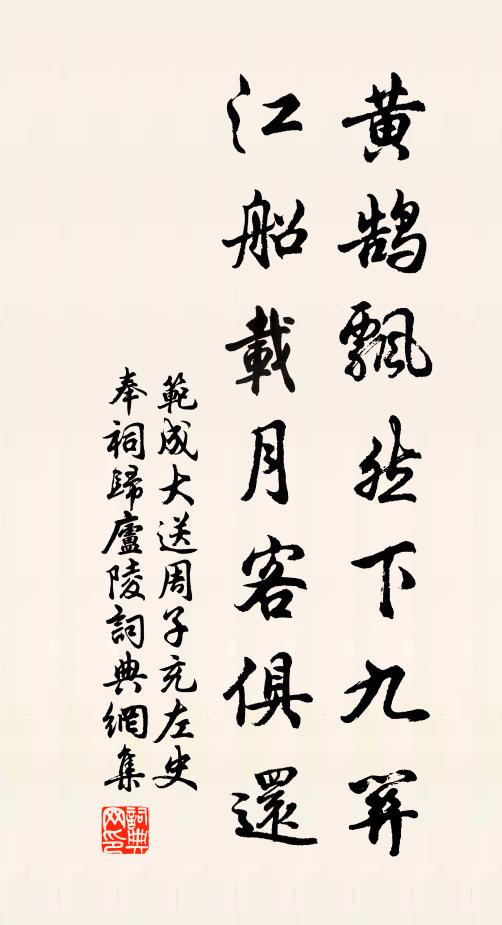 黃鵠飄然下九關
江船載月客俱還
範成大送周子充左史
奉祠歸廬陵詞典網集
詞典
网印